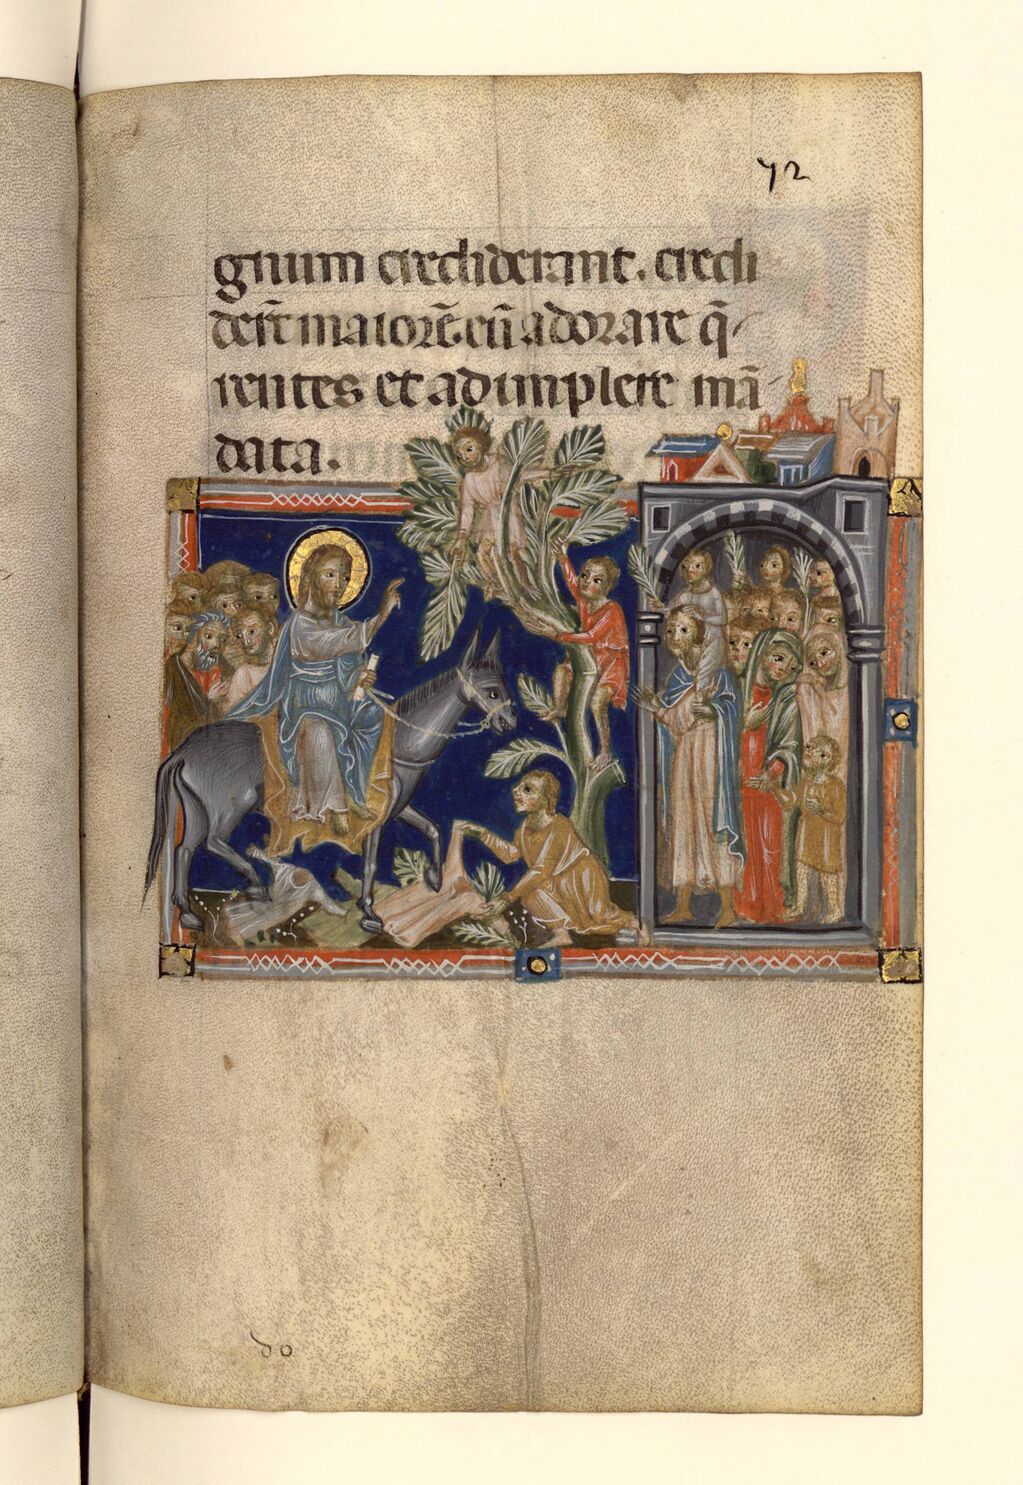 72
gnum crediderant. credi
der̄t maiorē. eū adorare q̄-
rentes et adimplere mā-
data.
do